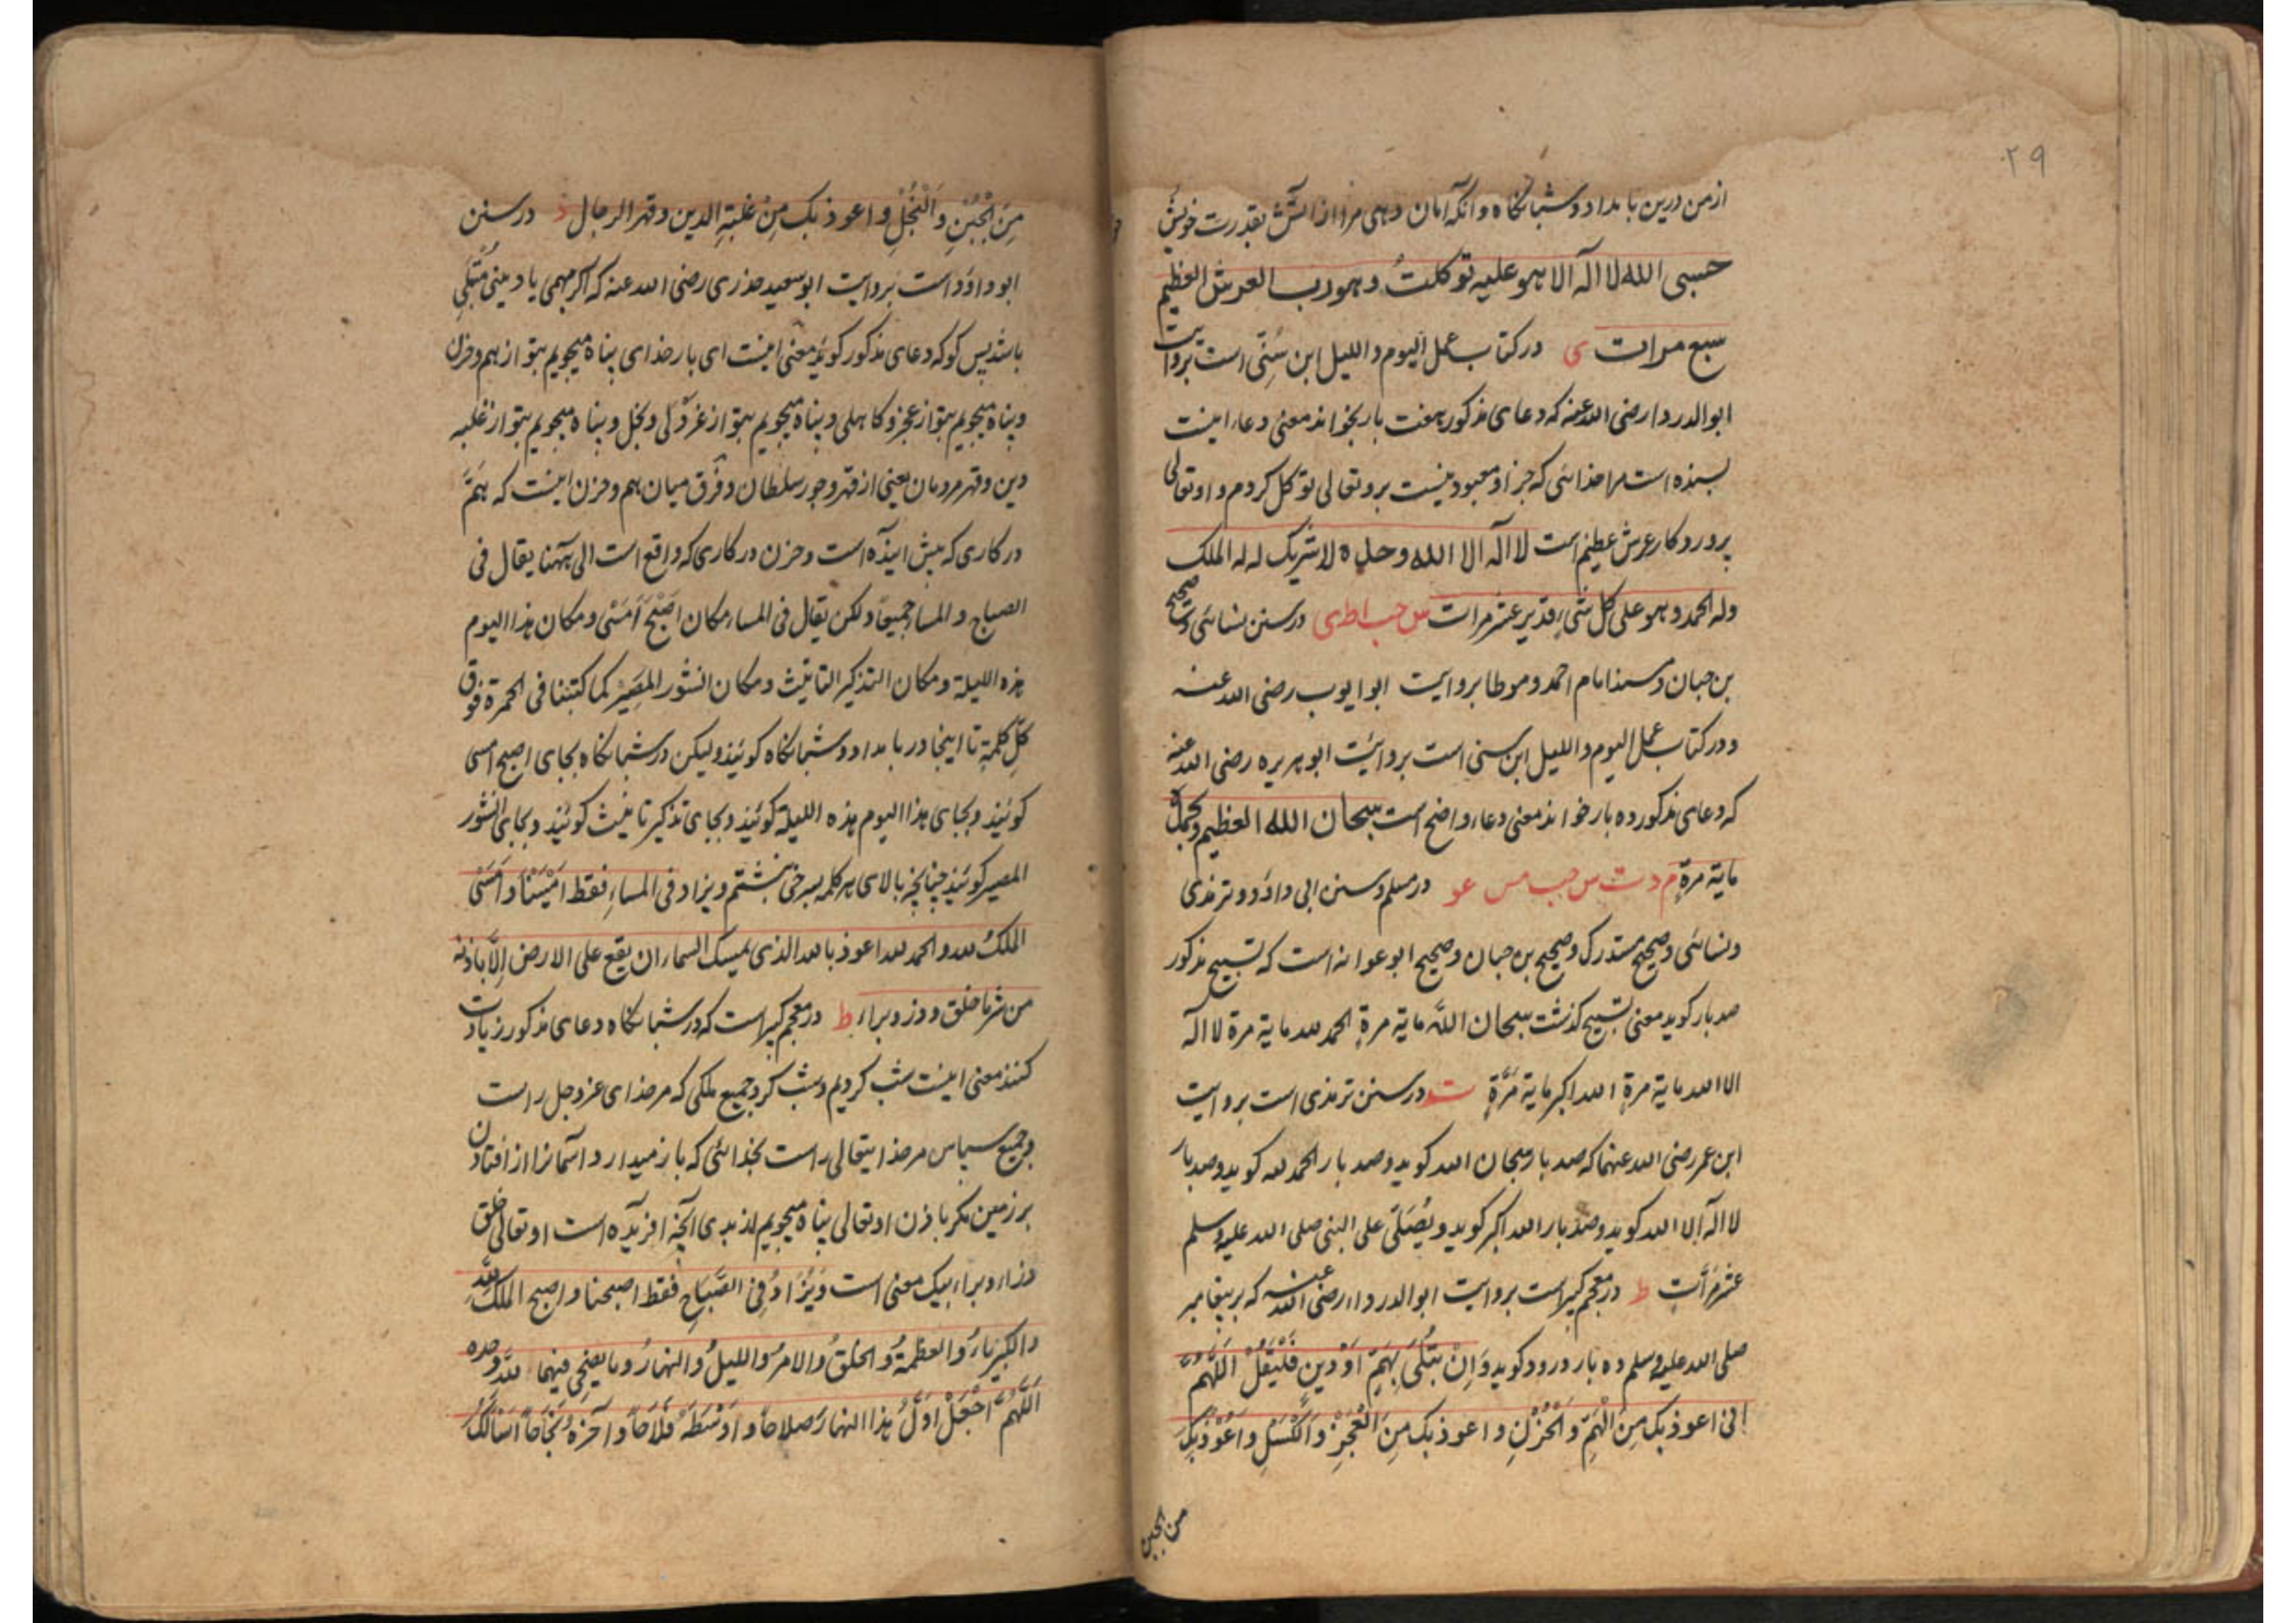 ۲۹
ازمن درین بامداد و شبانکاه و آنکه امان دهی مرا از اتش بقدرت خویش
حسبی الله لا اله الا هو علیه توکلتُ و هو رب العرش العظیم
سبع مرات ی در کتاب عمل الیوم و اللیل ابن سُنّی است بروایت
ابوالدردا رضی الله عنه که دعای مذکور هفت بار بخواند معنی دعا اینست
بسنده است مرا خدائی که جز او معبود نیست برو تعالی توکل کردم و او تعالی
پروردکار عرش عظیم است لا اله الا الله وحده لا شریک له له الملک
وله الحمد وهو علی کل شیء قدیر عشر مرات س حب ا ط ی در سنن نسائی و صحیح
بن حبان و مسند امام احمد و موطا بروایت ابوایوب رضی الله عنه
و در کتاب عمل الیوم و اللیل ابن سنی است بروایت ابوهریره رضی الله عنه
که دعای مذکور ده بار خواند معنی دعا واضح است سبحان الله العظیم وبحمده
مایة مرةٍ م د ت س حب مس عو در مسلم و سنن ابی داؤد و ترمذی
و نسائی و صحیح مستدرک و صحیح بن حبان و صحیح ابوعوانه است که تسبیح مذکور
صد بار کوید معنی تسبیح کذشت سبحان اللّه مایة مرةٍ الحمد لله مایة مرة لا اله
الا الله مایة مرةٍ الله اکبر مایة مَرَّةٍ ت در سنن ترمذی است بروایت
ابن عمر رضی الله عنهما که صد بار سبحان الله کوید و صد بار الحمد لله کوید و صد بار
لا اله الا الله کوید و صد بار الله اکبر کوید و یُصَلّی علی النبی صلی الله علیه وسلم
عشر مَرَّاتٍ ط در معجم کبیر است بروایت ابوالدرداء رضی الله عنه که بر پیغامبر
صلی الله علیه وسلم ده بار درود کوید وَاِنْ بُتُلِیَ بِهَمٍّ اَوْ دَینٍ فَلْیَقُلْ اَللّٰهُمَّ
اِنی اعوذبک مِنَ الْهَمِّ وَ الْحُزْنِ و اعوذبک مِنَ الْعَجْزِ وَ الْکَسَلِ وَ اَعُوْذُبِکَ
من الجبن
مِنَ الْجُبْنِ وَ الْبُخْلِ و اعوذبک مِنْ غَلَبَةِ الدین و قهر الرجال د در سنن
ابوداؤد است بروایت ابوسعید خدری رضی الله عنه که اکر مهمی یا دینی مُبتَلی
باشد پس کو که دعای مذکور کوید معنی اینست ای بار خدای پناه میجویم بتو از هم و حزن
و پناه میجویم بتو از عجز و کاهلی و پناه میجویم بتو از غردلی و بخل و پناه میجویم بتو از غلبه
دین و قهر مردمان یعنی از قهر و جور سلطان و فرق میان هم و حزن اینست که هَمّ
در کاری که پیش اینده است و حزن در کاری که واقع است الی ههنا یقال فی
الصباح و المسا جمیعًا ولکن یقال فی المساء مکان اَصْبَحَ اَمْسَی و مکان هذا الیوم
هذه اللیلة و مکان التذکیر التانیث و مکان النشور المَصِیر کما کتبنا فی الحمرة فوق
کلِّ کلمةٍ تا اینجا در بامداد و شبانکاه کوئید ولیکن در شبانکاه بجای اصبح امسی
کوئید و بجای هذا الیوم هذه اللیلة کوئید و بجای تذکیر تانیث کوئید و بجای النشور
المصیر کوئید چنانچه بالای هر کلمه بسرخی نبشتم ویزاد فی المساءِ فقط اَمْسَیْنَا وَ اَمْسَی
الملکُ لله و الحمد لله اعوذ بالله الذی یمسک السماء ان یقع علی الارض اِلَّا باذنه
من شر ما خلق و ذرء و براء ط در معجم کبیر است که در شبانکاه دعای مذکور زیادت
کنند معنی اینست شب کردیم و شب کرد جمیع ملکی که مر خدای عز و جل راست
و جمیع سپاس مر خدایتعالی راست بخدائی که باز میدارد آسمانرا از افتادن
بر زمین مکر باذن او تعالی پناه میجویم از بدی آنچه آفریده است او تعالی خلق
ذراء و براء بیک معنی است وَیُزَادُ فِی الصَّبَاحِ فقط اصبحنا و اصبح الملک لِلّٰهِ
و الکبریاءُ و العظمةُ و الخلقُ و الامرُ و اللیلُ و النهارُ و ما یضحی فیهما للّٰه وحده
اَللّٰهُمَّ اجْعَلْ اَوَّلَ هذا النهار صلاحًا و اَوْسَطَهٗ فَلَاحًا و آخرهٗ نَجَاحًا اَسْاَلُکَ